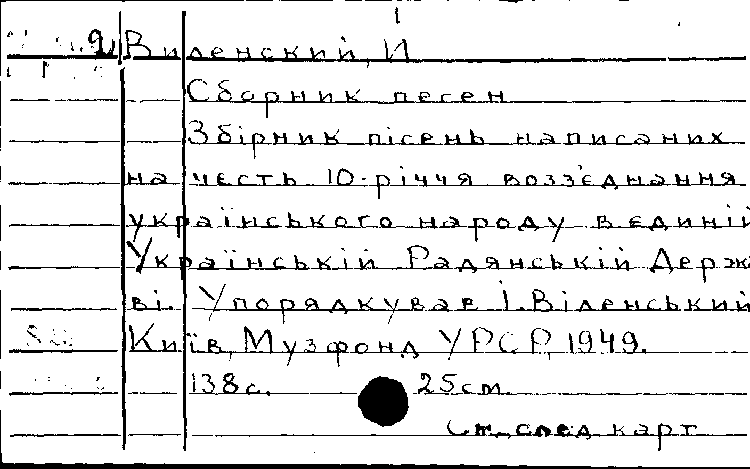 Виленский, И
Сборник песен
Збірник пісень написаних
на честь 10-річчя возз'єднання
українського народу в єдиній
Українській Радянській Держ
ві. Упорядкував І. Віленський
Київ, Музфонд УРСР, 1949.
138с. 25см
См. след карт